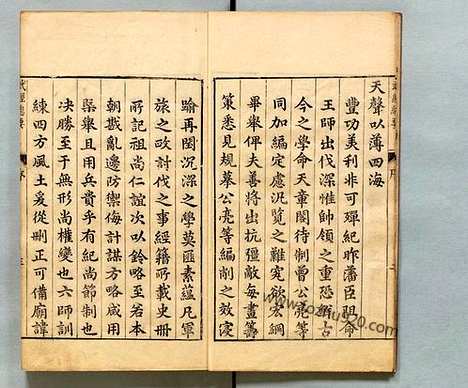 天聲以薄四海
豐功美利非可殫紀昨藩臣阻命
王師出伐深惟帥領之重恐鮮古
今之學命天章閣待制曾公亮等
同加編定慮況覽之難周欲宏綱
畢舉俾夫善將出抗彊敵每畫籌
策悉見規摹公亮等編削之效寖
踰再閏沉深之學莫匪素蘊凡軍
旅之政討伐之事經籍所載史冊
所記祖尚仁誼次以鈐略至若本
朝戡亂邊防禦侮計謀方略咸用
槩舉且用兵貴乎有紀尚節制也
决勝至于無形尚權變也六師訓
練四方風土爰從刪正可備廟諱
武經總要
序